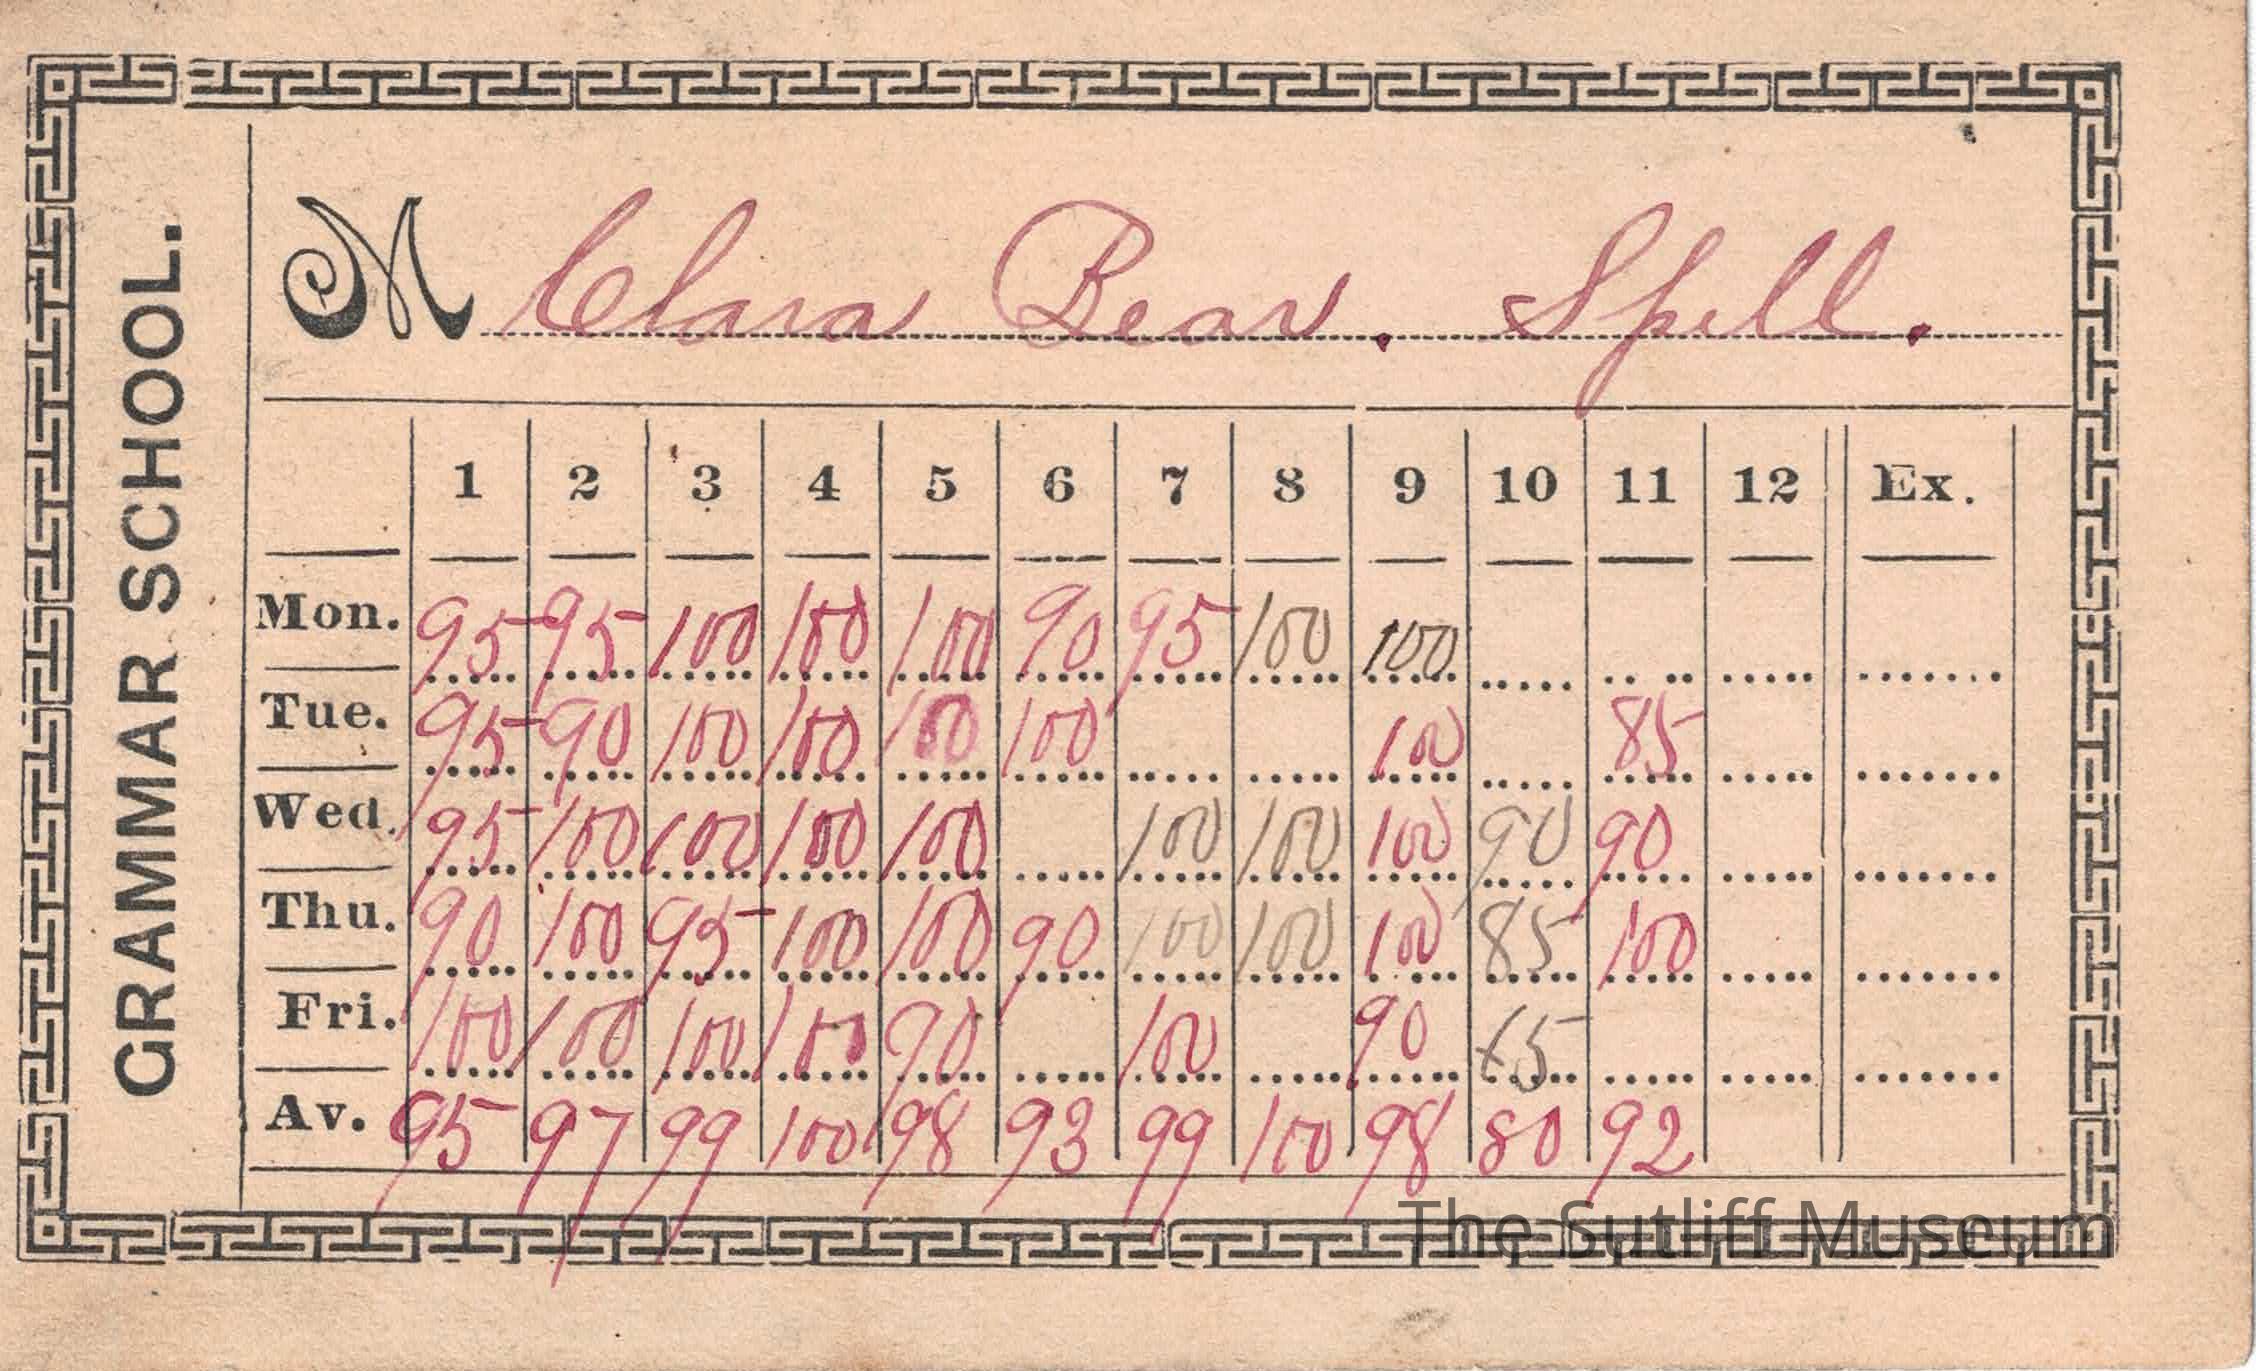 GRAMMAR SCHOOL.
M Clara Bear. Spell.
1 2 3 4 5 6 7 8 9 10 11 12 Ex.
Mon. 95 95 100 100 100 90 95 100 100
Tue. 95 90 100 100 100 100 100 85
Wed. 95 100 100 100 100 100 100 100 90 90
Thu. 90 100 95 100 100 90 100 100 100 85 100
Fri. 100 100 100 100 90 100 90 65
Av. 95 97 99 100 98 93 99 100 98 80 92
The Sutliff Museum